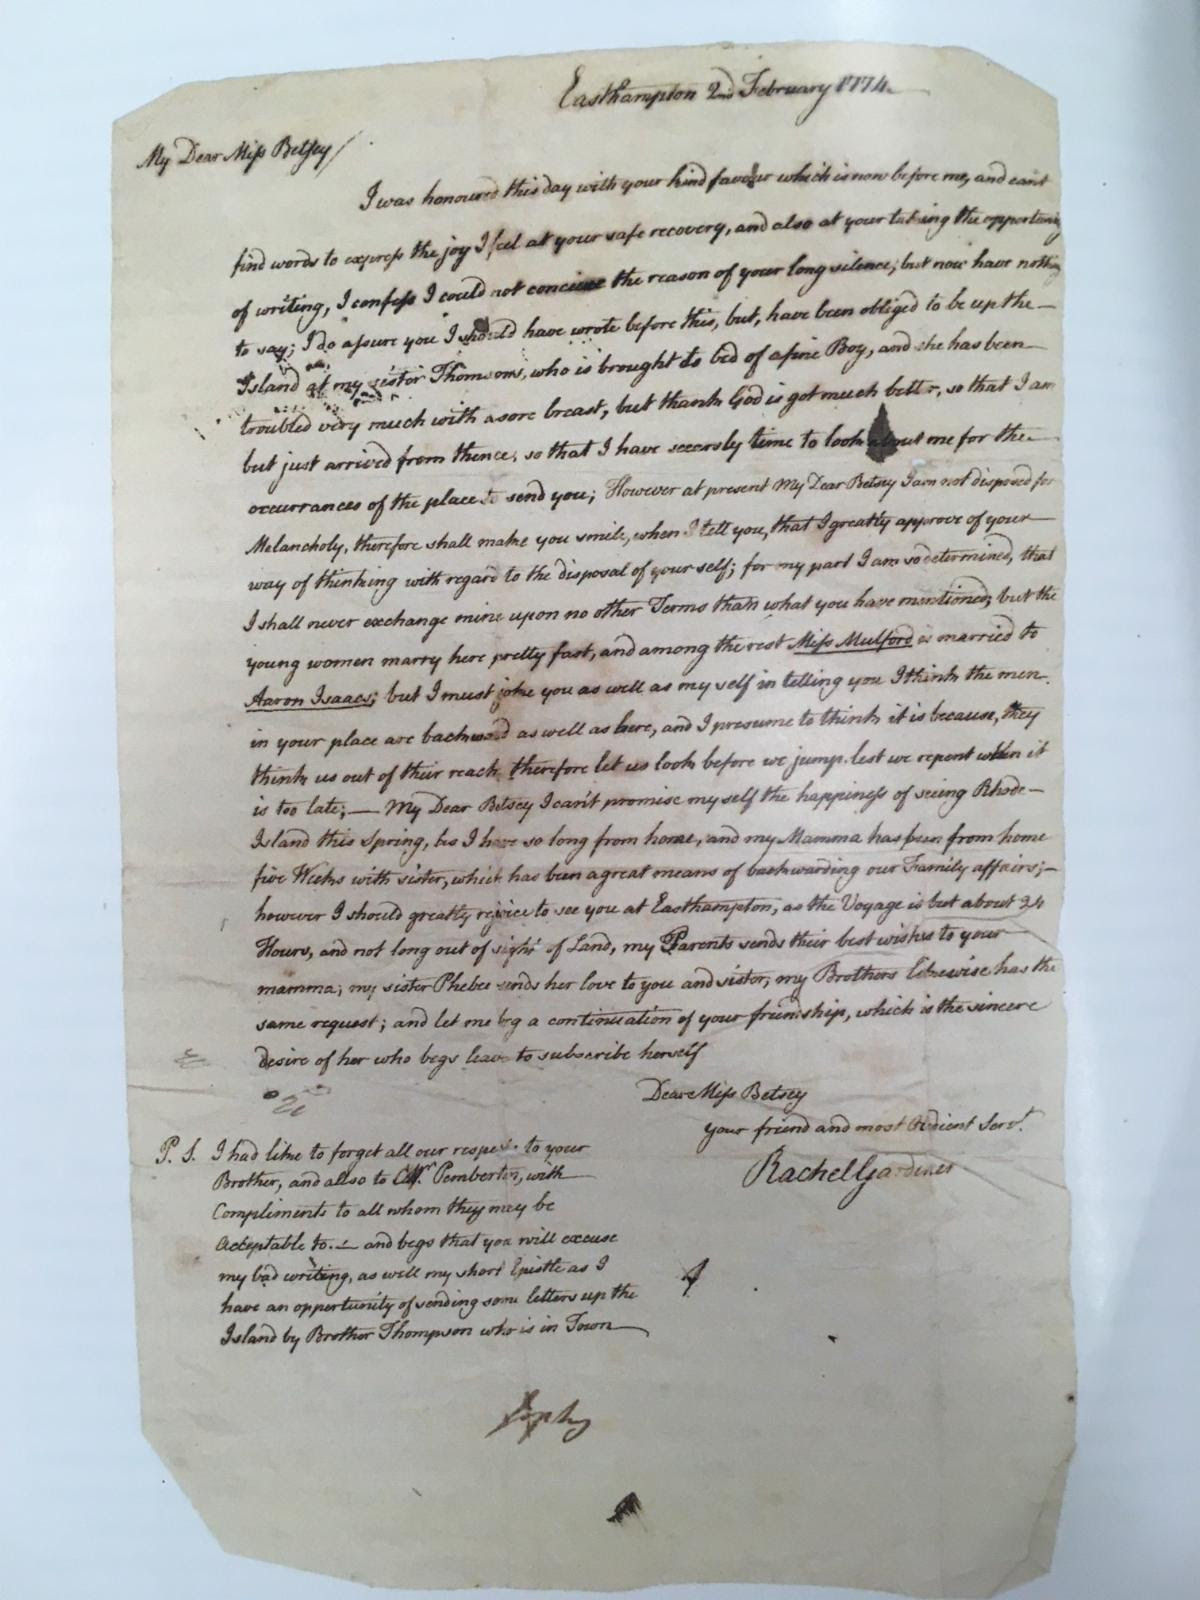 Easthampton 2nd February 1774.
My Dear Miss Betsey/
I was honoured this day with your kind favour which is now before me, and can't
find words to express the joy I feel at your safe recovery, and also at your taking the opportunity
of writing, I confess I could not conceive the reason of your long silence; but now have nothing
to say; I do assure you I should have wrote before this, but, have been obliged to be up the
Island at my sister Thomsons, who is brought to bed of a fine Boy, and she has been
troubled very much with a sore breast, but thank God is got much better, so that I am
but just arrived from thence, so that I have scearsly time to look about me for the
occurrances of the place to send you; However at present My Dear Betsey I am not disposed for
Melancholy, therefore shall make you smile, when I tell you, that I greatly approve of your
way of thinking with regard to the disposal of your self; for my part I am so determined, that
I shall never exchange mine upon no other Terms than what you have mentioned; but the
young women marry here pretty fast, and among the rest Miss Mulford is married to
Aaron Isaacs; but I must joke you as well as my self in telling you I think the men
in your place are backward as well as here, and I presume to think it is because, they
think us out of their reach, therefore let us look before we jump lest we repent when it
is too late; — My Dear Betsey I can't promise my self the happiness of seeing Rhode-
Island this Spring, as I have so long from home, and my Mamma has been from home
five Weeks with sister, which has been a great means of backwarding our Family affairs; —
however I should greatly rejoice to see you at Easthampton, as the Voyage is but about 24
Hours, and not long out of sight of Land, my Parents sends their best wishes to your
mamma; my sister Phebee sends her love to you and sister, my Brothers likewise has the
same request; and let me beg a continuation of your friendship, which is the sincere
desire of her who begs leave to subscribe herself
Dear Miss Betsey
your friend and most Obdient Servt.
Rachel Gardiner
P. S. I had like to forget all our respects to your
Brother, and allso to Mr. Pemberton, with
Compliments to all whom they may be
acceptable to. — and begs that you will excuse
my bad writing, as well my short Epistle as I
have an opportunity of sending some letters up the
Island by Brother Thompson who is in Town